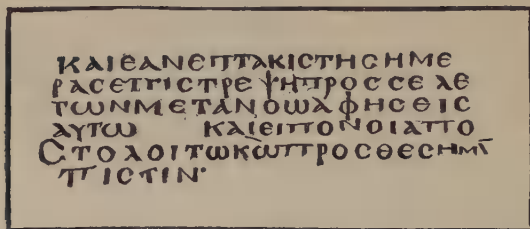 ΚΑΙΕΑΝΕΠΤΑΚΙϹΤΗϹΗΜΕ
ΡΑϹΕΠΙϹΤΡΕΨΗΠΡΟϹϹΕΛΕ
ΓωΝΜΕΤΑΝΟωΑΦΗϹΕΙϹ
ΑΥΤω ΚΑΙΕΙΠΟΝΟΙΑΠΟ
ϹΤΟΛΟΙΤωΚω̅ΠΡΟϹΘΕϹΗΜΙ̅
ΠΙϹΤΙΝ·